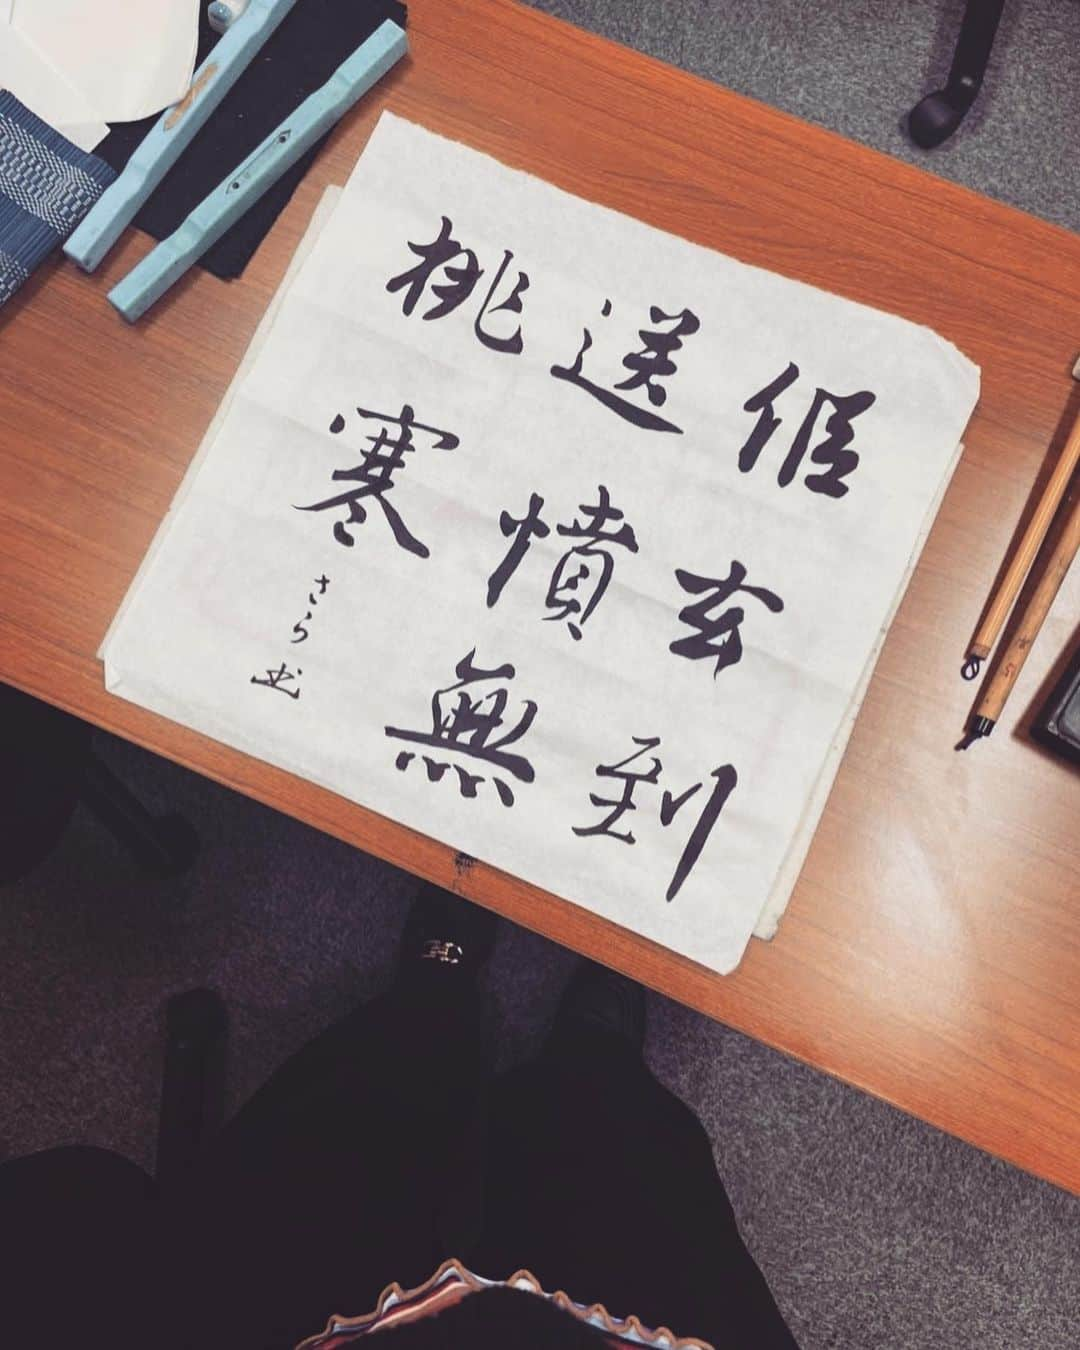 假玄到
送憤無
桃寒
さら書